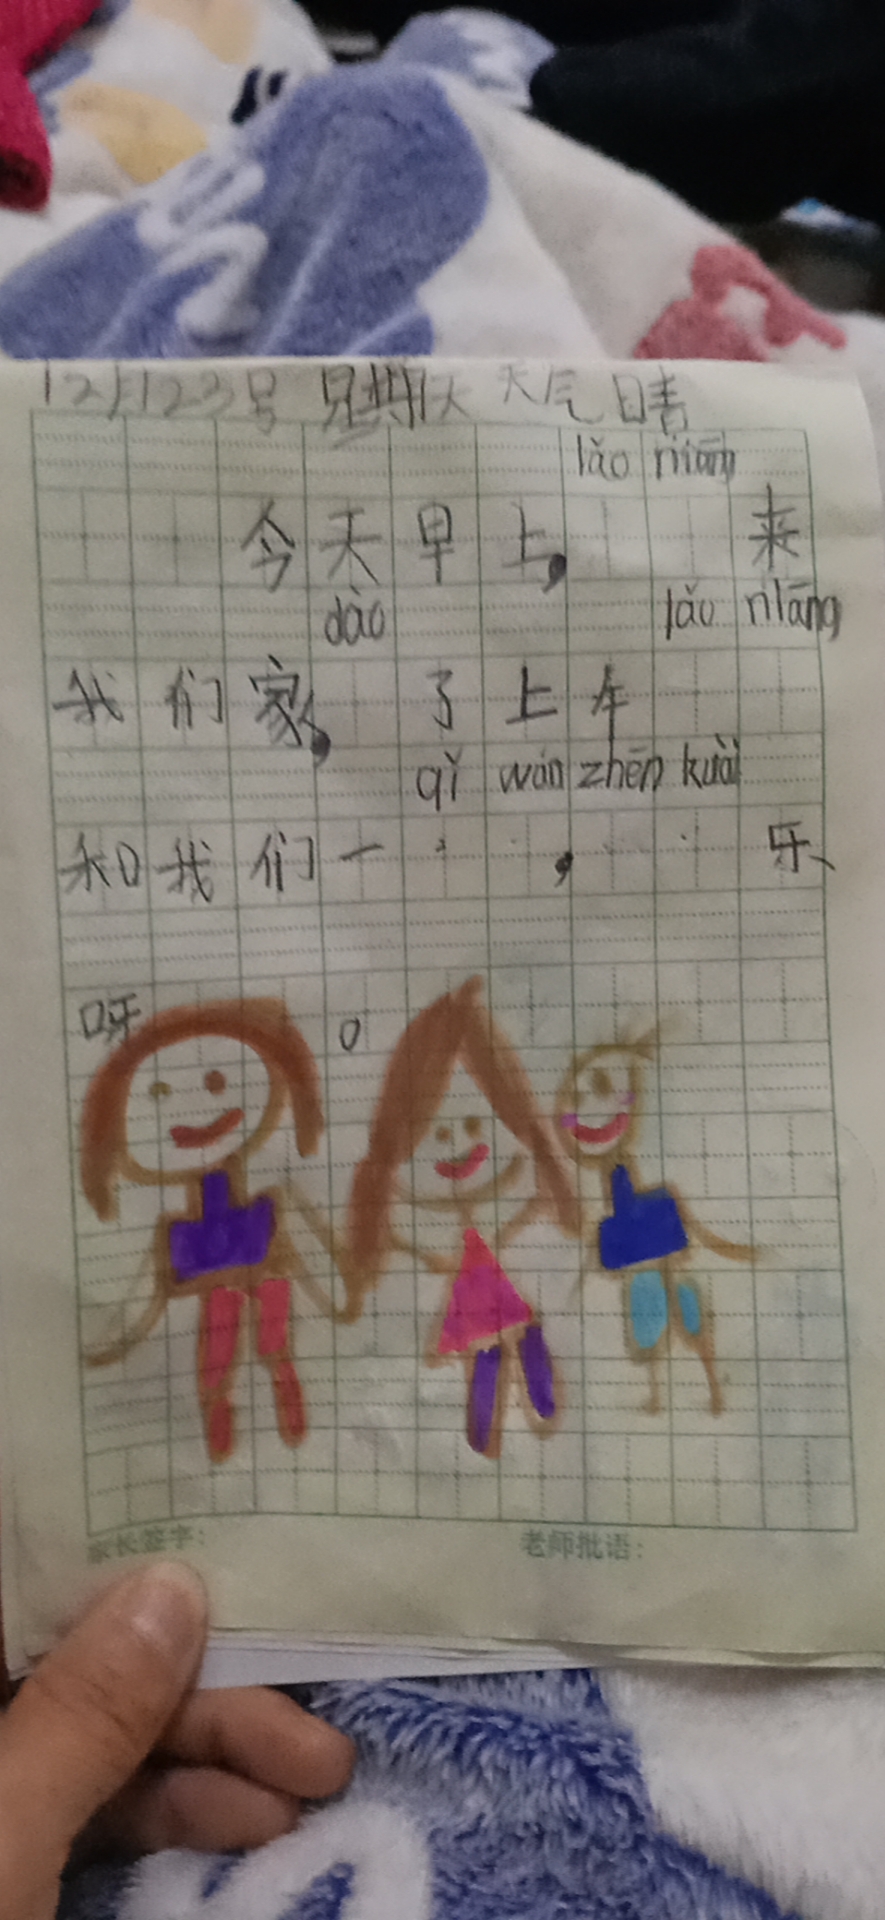 12月23号 星期天 天气晴
lǎo niāng
今天早上, 来
dào lǎo niāng
我们家, 了上午
qǐ wán zhēn kuài
和我们一 , 乐
呀。
家长签字: 老师批语: